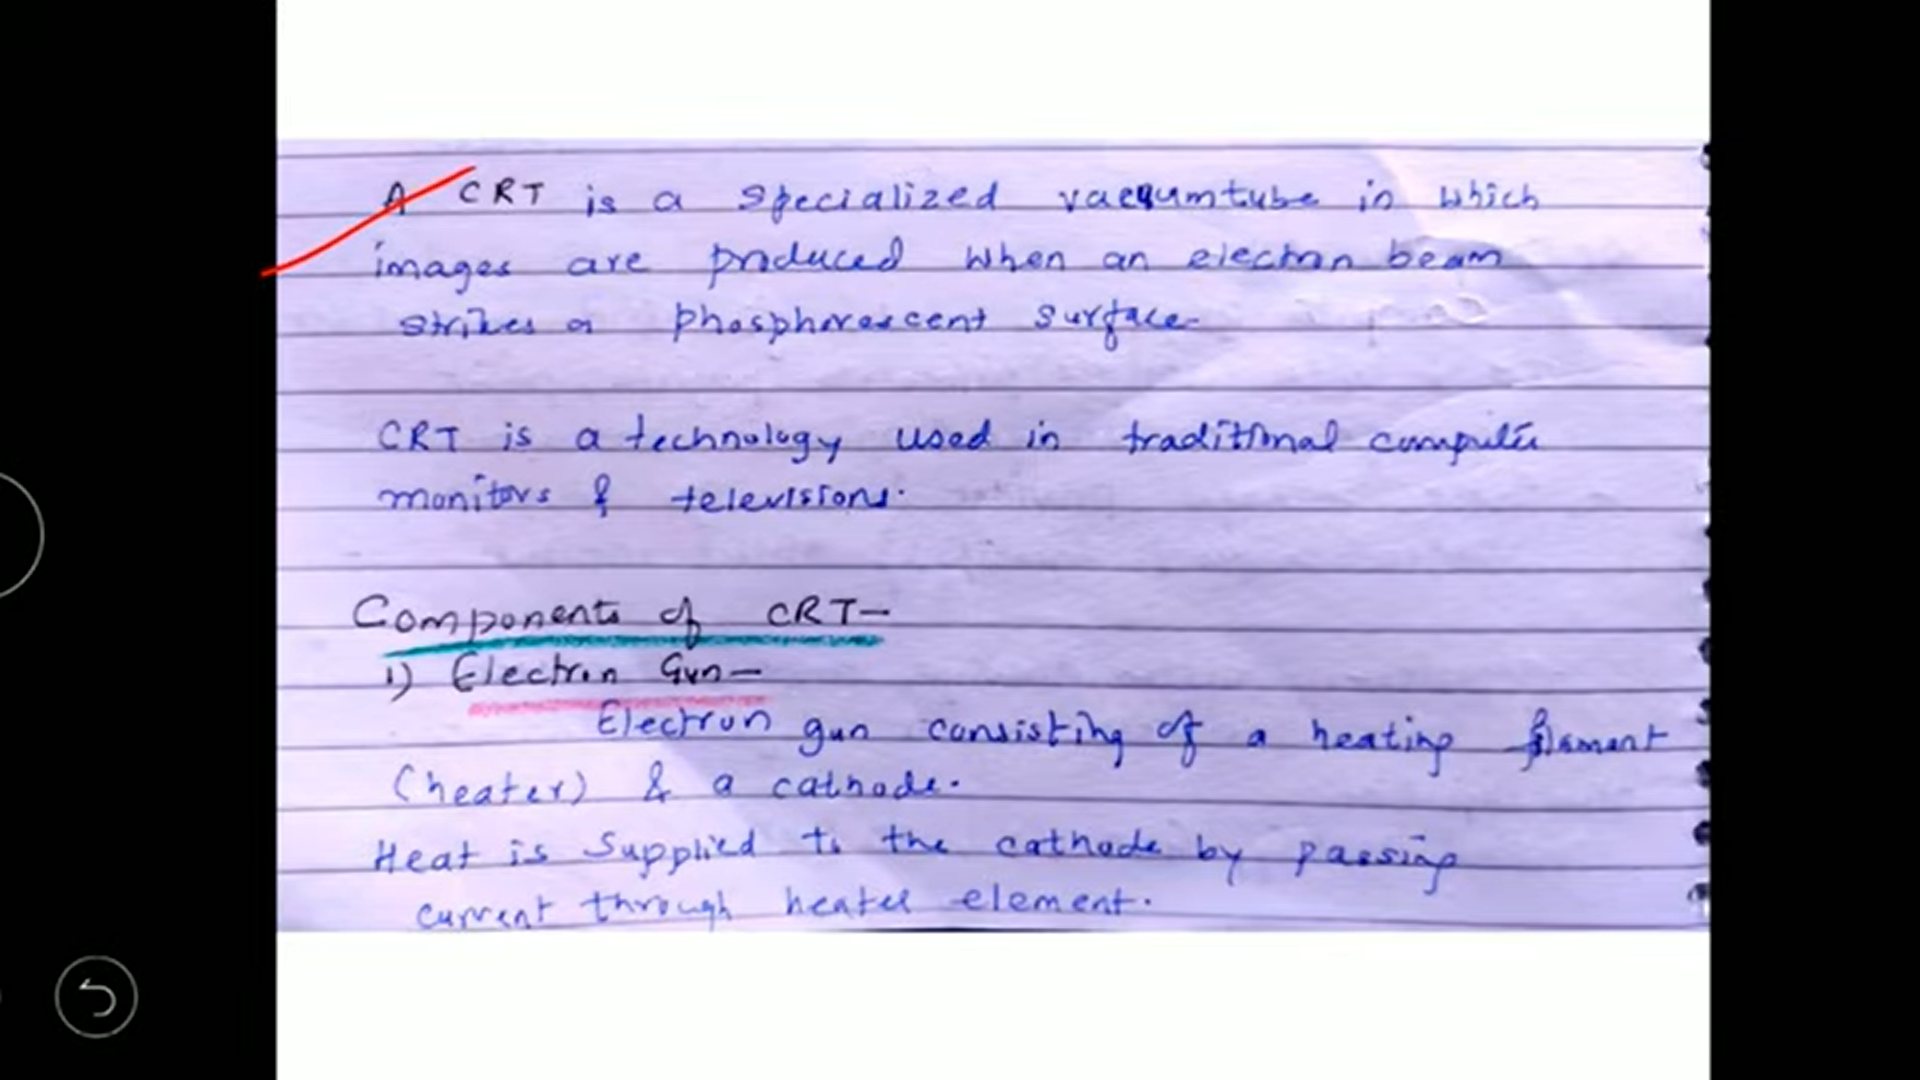 A CRT is a specialized vacuumtube in which
images are produced when an electron beam
strikes a phosphorescent surface-
CRT is a technology used in traditional computer
monitors & televisions.
Components of CRT-
1) Electron Gun-
Electron gun consisting of a heating filament
(heater) & a cathode.
Heat is supplied to the cathode by passing
current through heater element.